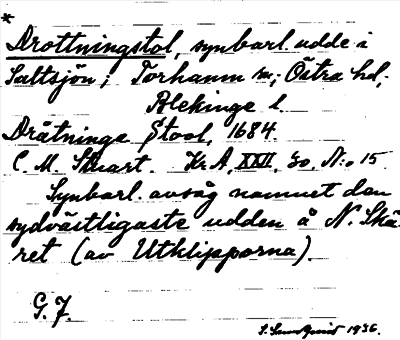 *
Drottningstol, synbarl. udde i
Saltsjön; Torhamn sn; Östra hd,
Blekinge l.
Drätninge Stool, 1684.
C. M. Stuart. Kr A, XXII, 30, N:o 15
Synbarl. avsåg namnet den
sydvästligaste udden å N. Skä-
ret (av Utklipporna).
G. F.
S. Sundquist 1936.